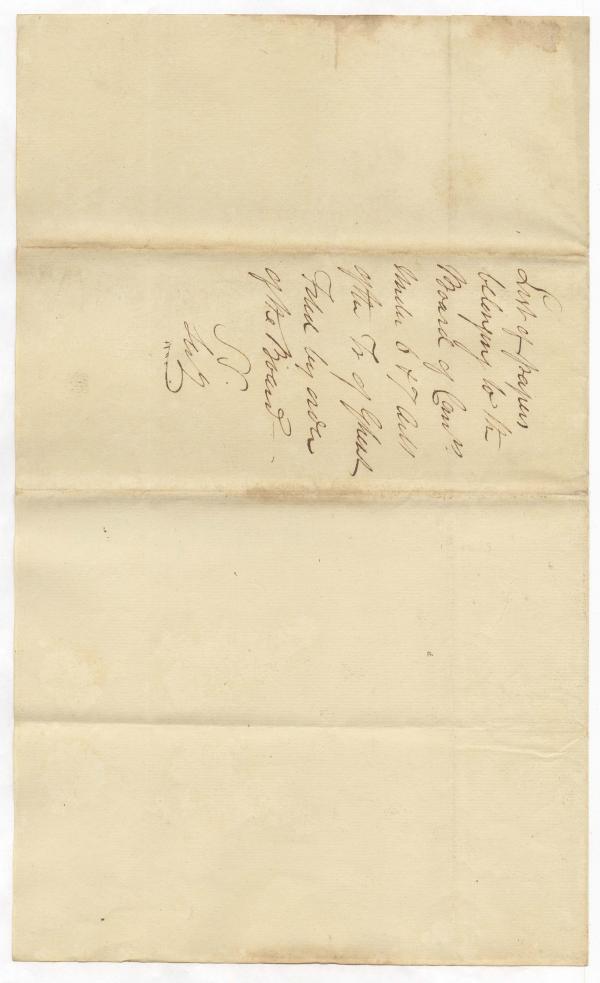 List of Papers
belonging to the
Board of Com.rs
Under 6 & 7 Arts
of the Tr. of Ghent
Filed by order
of the Board.
Secy